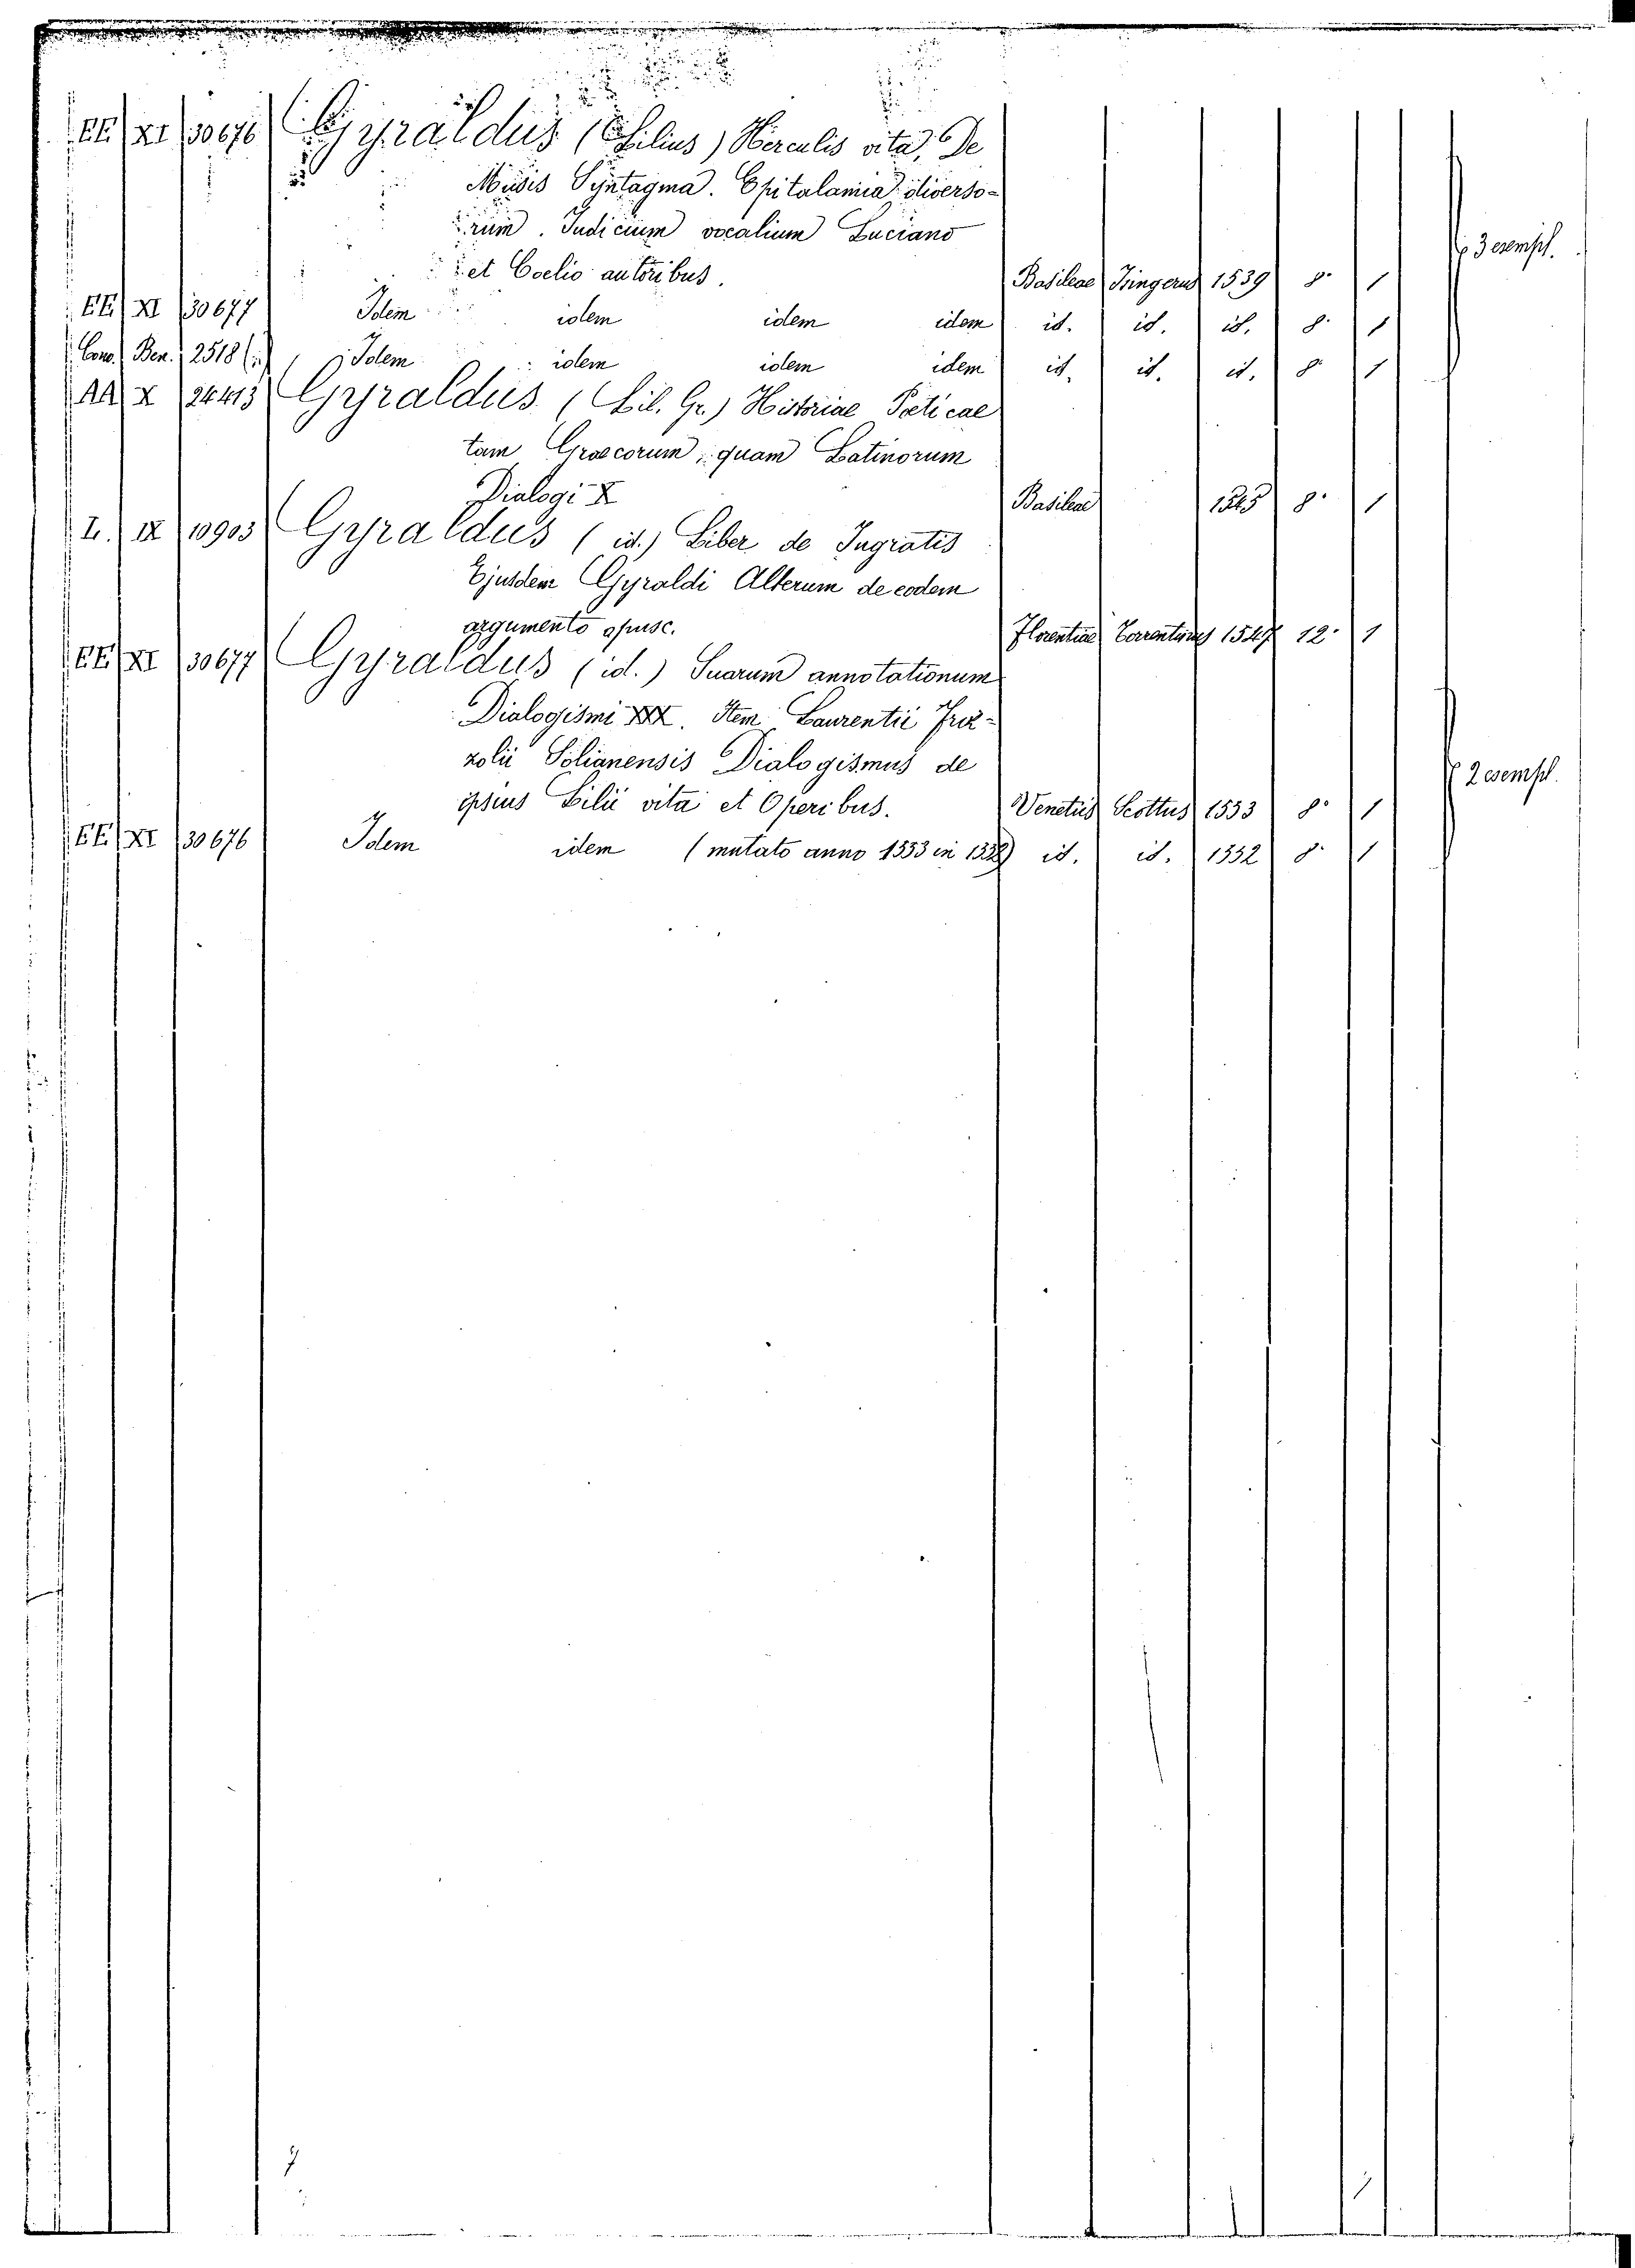 EE XI 30676 Gyraldus (Lilius) Herculis vita, De
Musis Syntagma. Epitalamia diverso-
rum. Judicium vocalium Luciano
et Coelio autoribus. Basileae Isingerus 1539 8° 1
3 esempl.
EE XI 30677 Idem idem idem idem id. id. id. 8° 1
Conv. Ben. 2518 Idem idem idem idem id. id. id. 8° 1
AA X 24413 Gyraldus (Lil. Gr.) Historiae Poeticae
tam Graecorum, quam Latinorum
Dialogi X Basileae 1545 8° 1
I. IX 10903 Gyraldus (id.) Liber de Ingratis
Ejusdem Gyraldi Alterum de eodem
argumento opusc. Florentiae 12° 1
EE XI 30677 Gyraldus (id.) Suarum annotationum
Dialogismi XXX. Item Laurentii Friz-
zolii Solianensis Dialogismus de
ipsius Lilii vita et Operibus. Venetiis Scottus 1553 8° 1
2 esempl.
EE XI 30676 Idem idem (mutato anno 1553 in 1552) id. id. 1552 8° 1